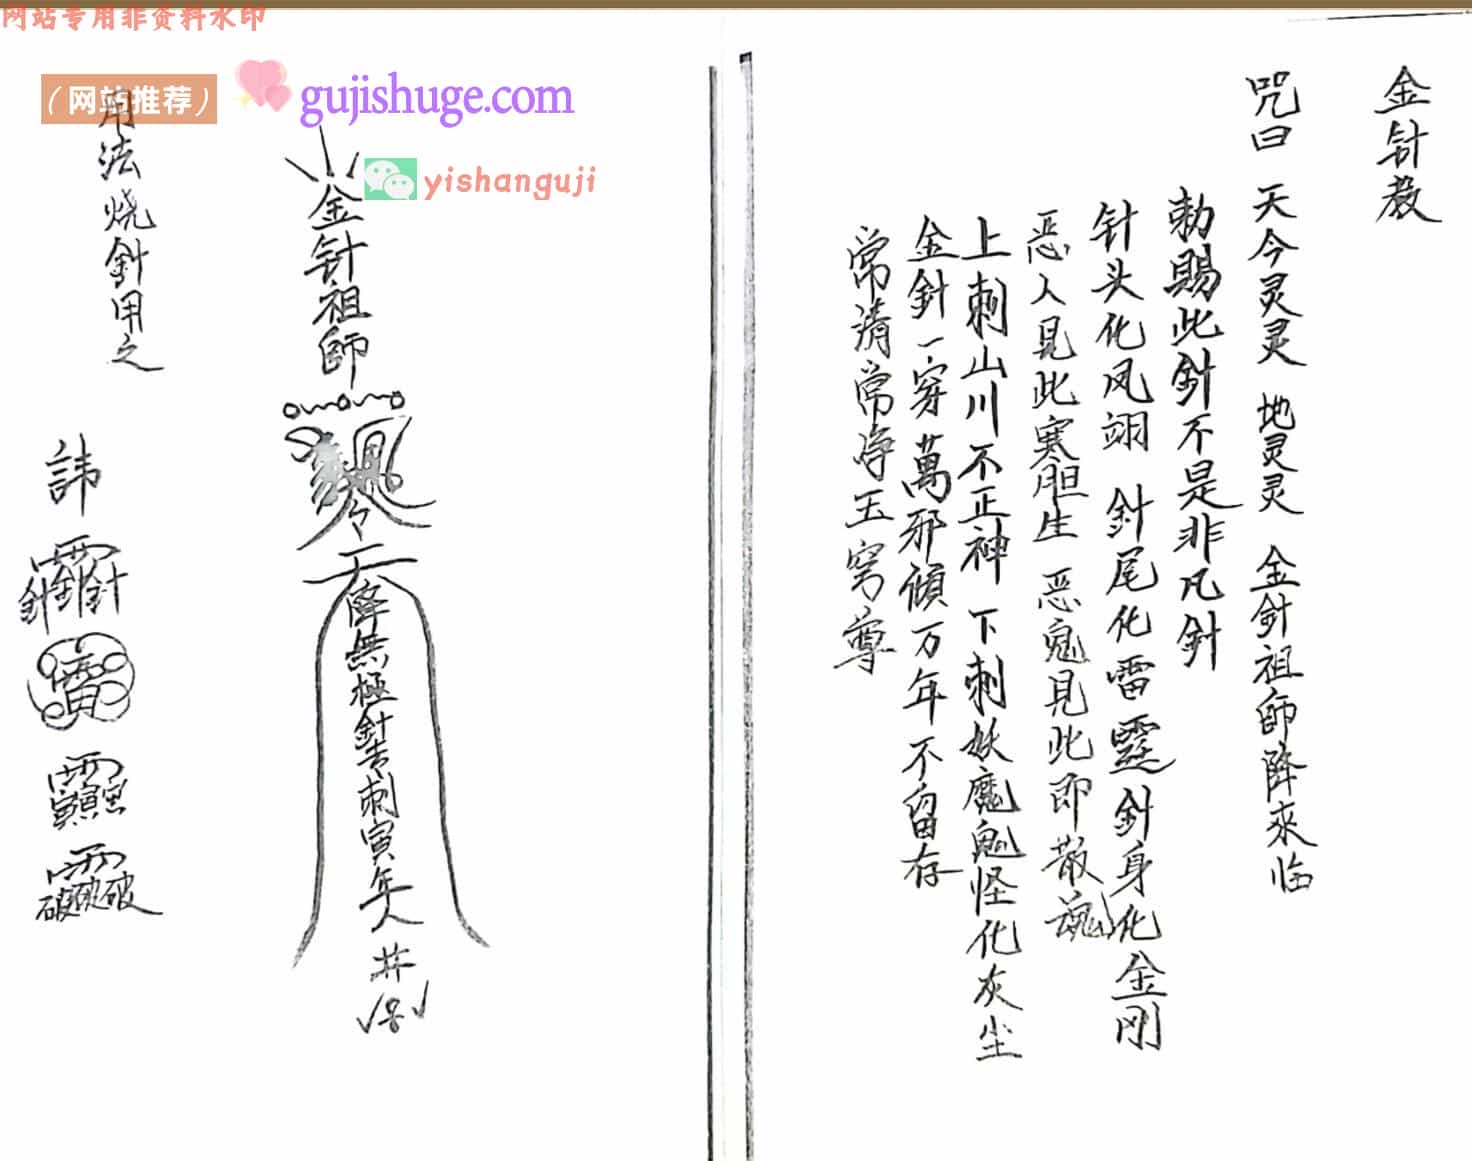 网站专用非资料水印
(网站推荐)
gujishuge.com
yishanguji
金針教
咒曰 天今灵灵 地灵灵 金針祖師降來临
勅賜此針不是非凡針
针头化凤翊 針尾化雷霆 針身化金刚
恶人見此寒胆生 恶鬼見此即散魂
上刺山川不正神 下刺妖魔鬼怪化灰尘
金針一穿萬邪傾万年不留存
常清常净玉穹尊
金针祖師
降無極針去刺寅年人
用法烧針用之
諱